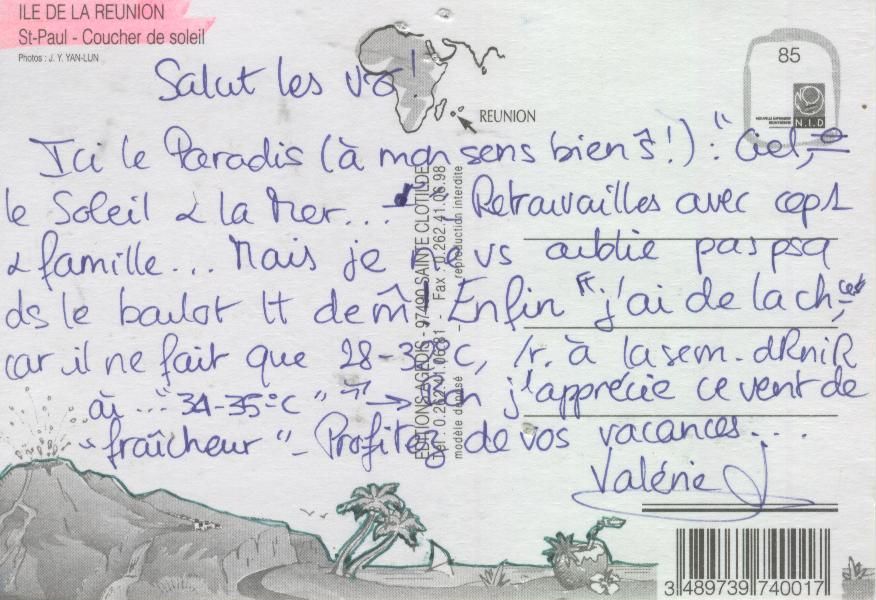 ILE DE LA REUNION
St-Paul - Coucher de soleil
Photos : J. Y. YAN-LUN
85
N.I.D
REUNION
Salut les vs!
Ici le Paradis (à mon sens bien s!): "Ciel,
le Soleil & la Mer... Retrouvailles avec cop1
& famille... Mais je ne vs oublie pas psq
ds le boulot tt de m̂. Enfin "j'ai de la ch^ce"
car il ne fait que 28-30°C, /r. à la sem. dRniR
où "34-35°C" → Bon j'apprécie ce vent de
"fraîcheur" - Profitez de vos vacances...
Valérie
EDITIONS AGEDIS - 97490 SAINTE CLOTILDE
Fax : 0.262.41.06.98
modèle déposé - reproduction interdite
3 489739 740017